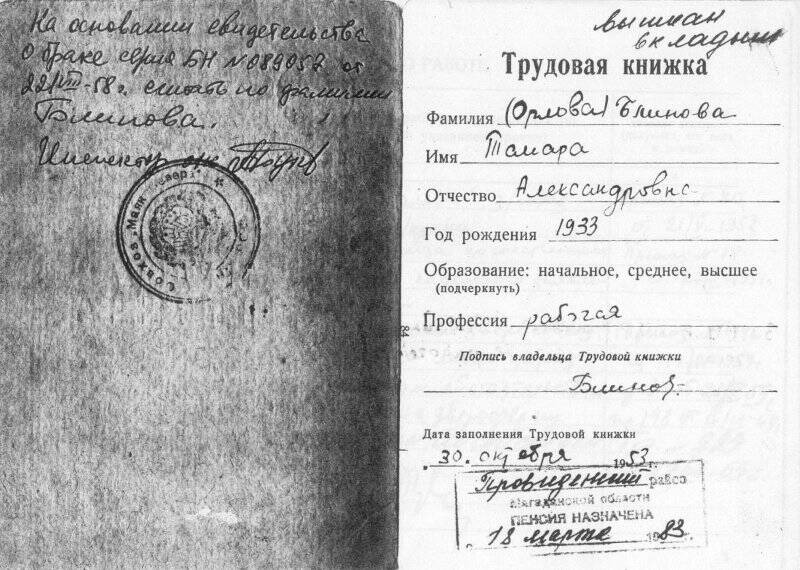 На основании свидетельства
о браке серия БН № 089057 от
22/VIII-58 г. считать по фамилии
Блинова.
Инспектор
Совхоз „Маяк Севера“
выписан
вкладыш
Трудовая книжка
Фамилия (Орлова) Блинова
Имя Тамара
Отчество Александровна
Год рождения 1933
Образование: начальное, среднее, высшее
(подчеркнуть)
Профессия рабочая
Подпись владельца Трудовой книжки
Блинов
Дата заполнения Трудовой книжки
30. октября 1953 г.
Провиденский райсо
Магаданской области
ПЕНСИЯ НАЗНАЧЕНА
18 марта 1983